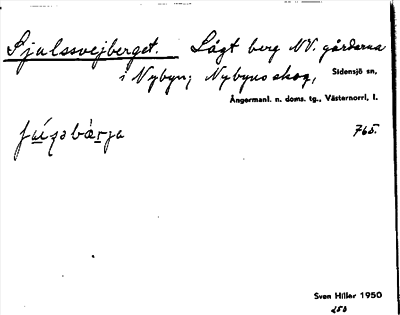 Sjulssvejberget. Lågt berg NV. gårdarna
i Nybyn; Nybyns skog, Sidensjö sn,
Ångermanl. n. doms. tg., Västernorrl. l.
765.
Sven Hiller 1950